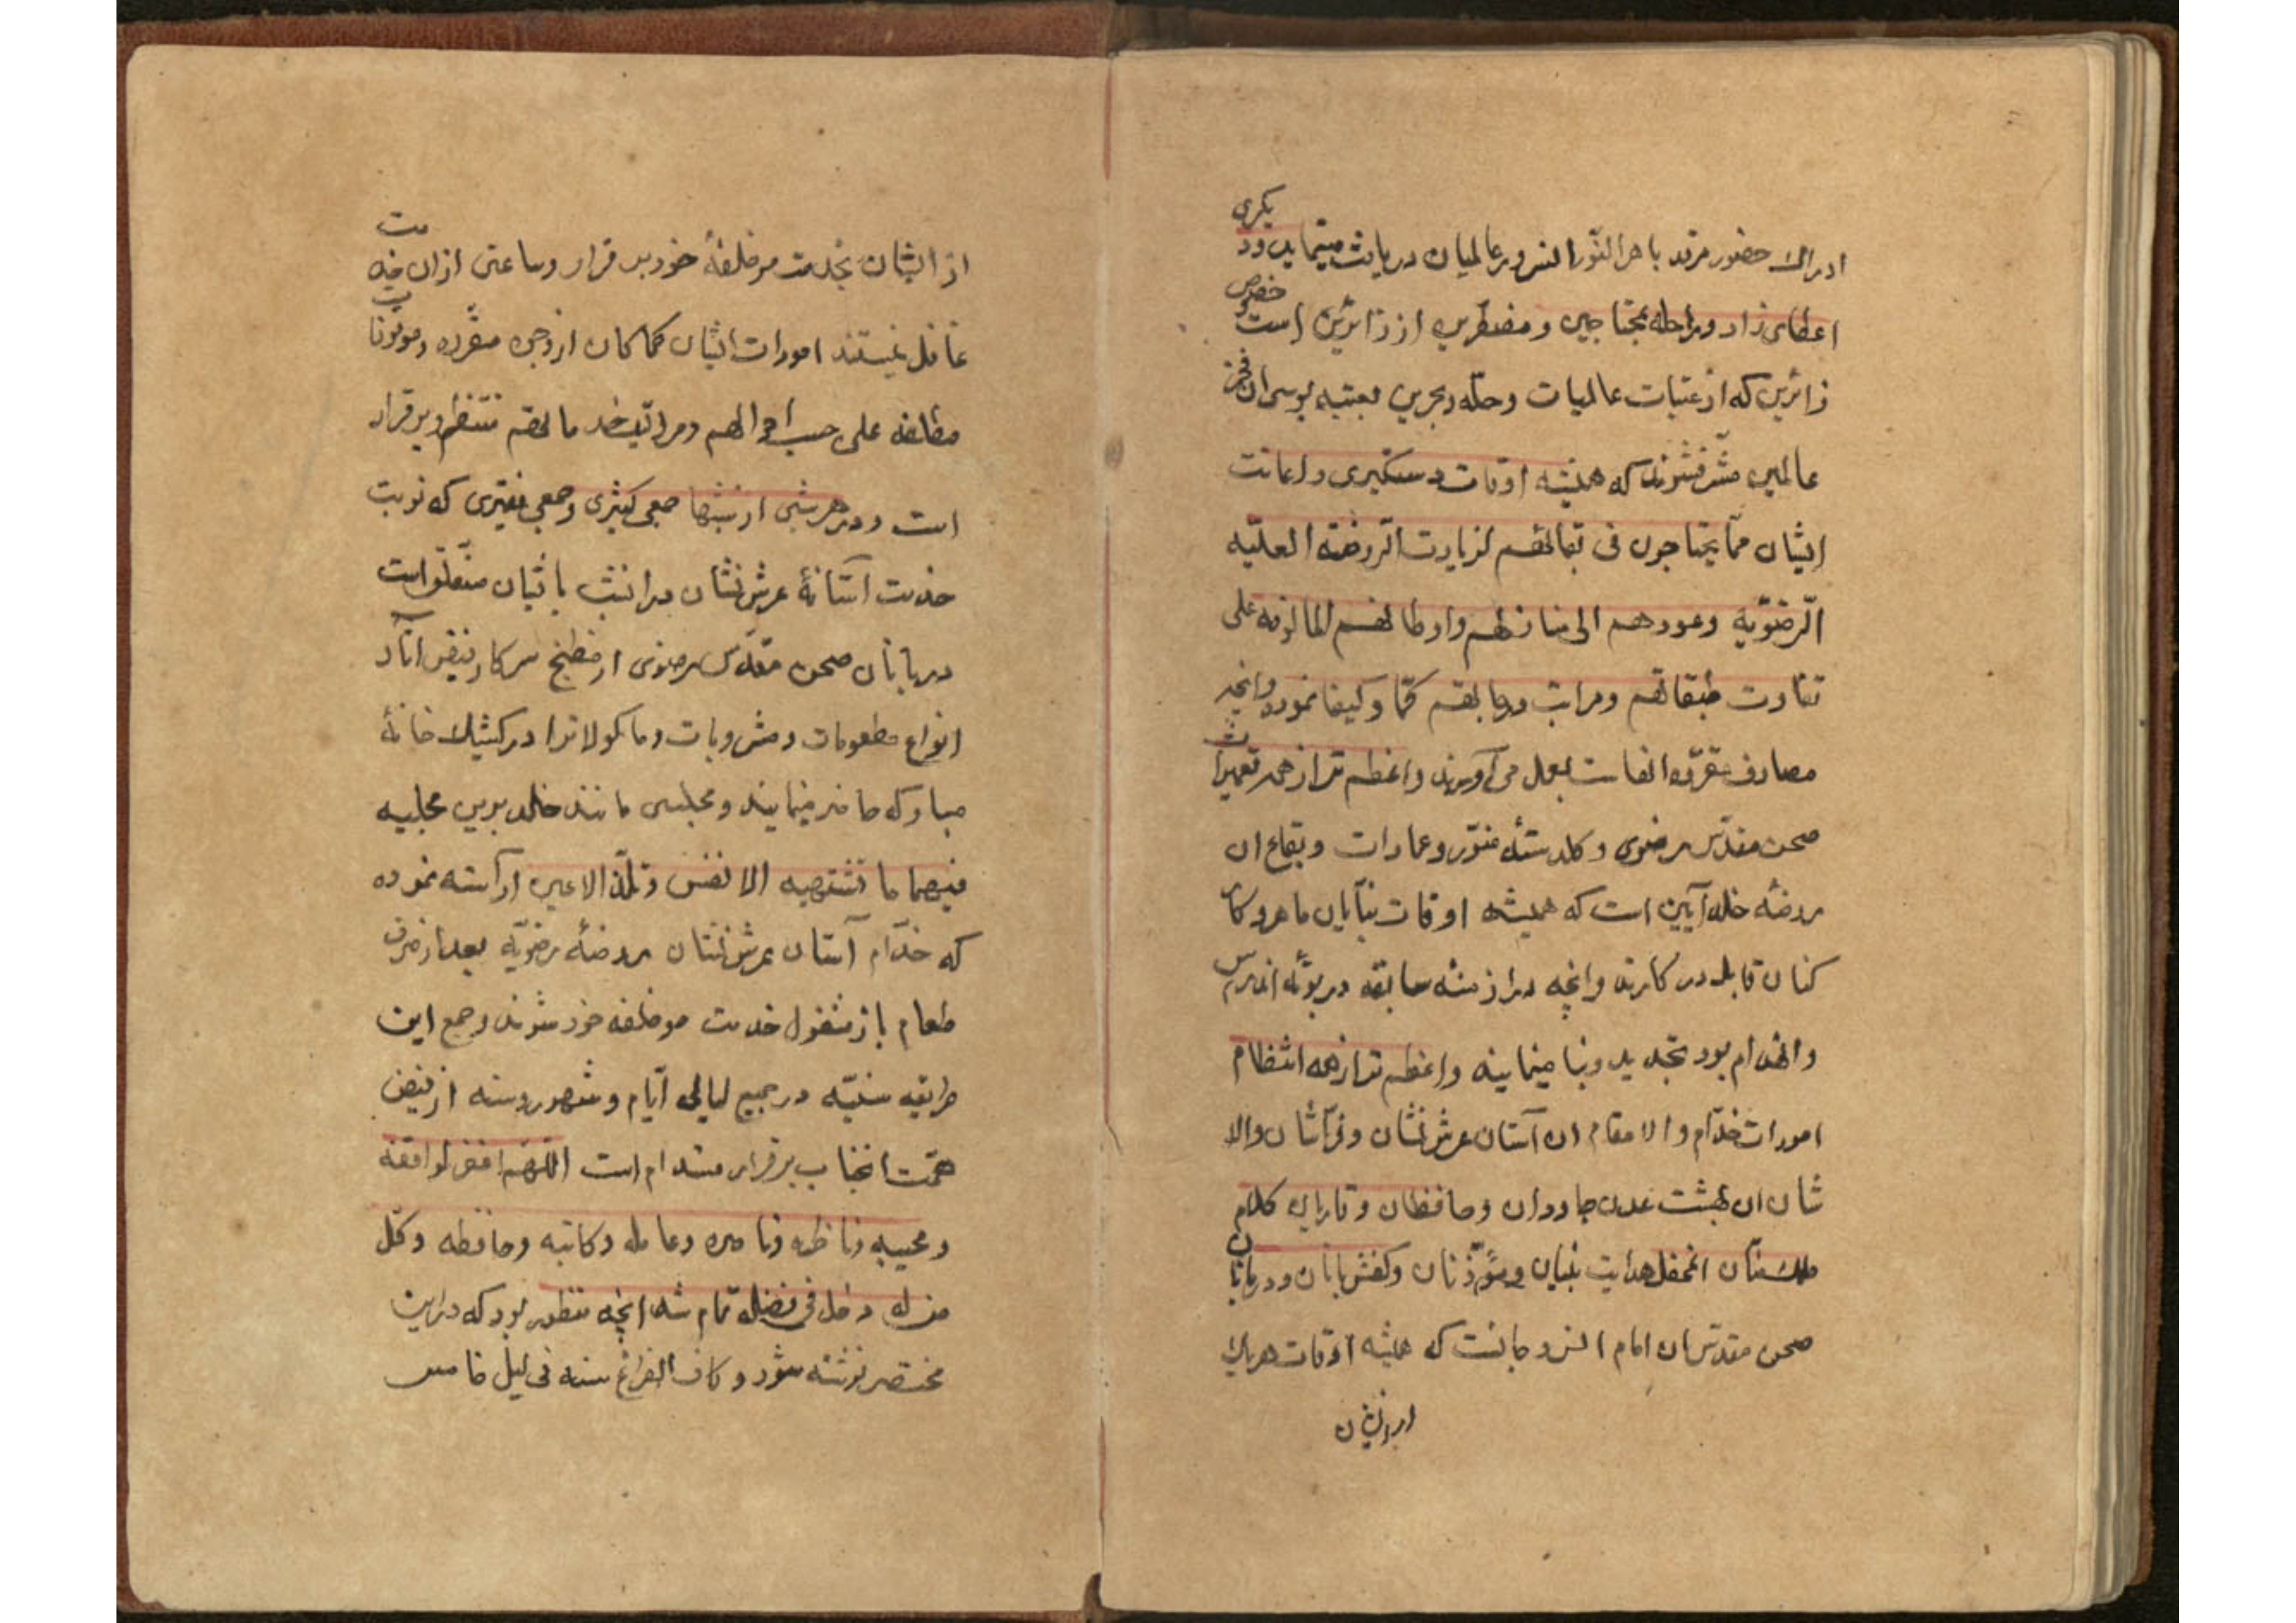 ادراک حضور مرقد باهر النّور انس و رعالمیان دریافت مینماید و دیکری
اعطای زاد و راحله بمحتاجین و مضطرین از زائرین است خصوص
زائرین که از عتبات عالیات و حلّه و بحرین بعتبه بوسی ان فخر
عالمین مشرّف شوند که همیشه اوقات دستکیری و اعانت
ایشان ممّا یحتاجون فی بقائهم لزیارت الرّوضة العلیّه
الرّضویّه و عودهم الی منازلهم و اوطانهم المالوفه علی
تفاوت طبقاتهم و مراتب درجاتهم کمّا و کیفا نموده وانچه
مصارف مقرّره انفاست بعمل می آورند و اعظم تر از همه تعمیرات
صحن مقدّس رضوی و کلدستهٔ منوّر و عمارات و بقاع ان
روضهٔ خلد آیین است که همیشه اوقات بنّایان ماهر و کار
کنان قابل در کارند وانچه در ازمنهٔ سابقه در بوتهٔ اندراس
و انهدام بود تجدید و بنا مینمایند و اعظم تر از همه انتظام
امورات خدّام والامقام ان آستان عرش نشان و فرّاشان والا
شان ان بهشت عدن جاودان و حافظان و قاریان کلام
ملک منّان انمحفل هدایت بنیان و مؤذّنان و کفش بانان و دربانان
صحن مقدّس ان امام انس و جانست که همیشه اوقات هر یک
از ایشان
از ایشان بخدمت موظفهٔ خود برقرار و ساعتی از ان خدمت
غافل نیستند امورات ایشان کماکان از وجوه مقرّره و موقوفات
مظانفه علی حسب احوالهم و مراتب خدماتهم منتظم و برقرار
است و در هر شبی از شبها جمعی کثیری و جمعی غفیری که نوبت
خدمت آستانهٔ عرش نشان در انشب باایشان متعلّق است
دربانان صحن مقدّس رضوی از مطبخ سرکار فیض آثار
انواع مطعومات و مشروبات و ماکولاترا در کشیک خانهٔ
مبارکه حاضر مینمایند و مجلسی مانند خلد برین مجلیه
فیهما ما تشتهیه الانفس و تلذّ الاعین اراسته نموده
که خدّام آستان عرش نشان روضهٔ رضویّه بعد از صرف
طعام باز مشغول خدمت موظفه خود شوند و جمع این
طریقه سنیّه در جمیع لیالی و ایّام و شهور و سنه از فیض
همّت انجناب برقرار و مستدام است اللهمّ اغفر لواقفه
و محبیه و ناظره و ناصره و عامله و کاتبه و حافظه و کلّ
من له دخل فی فضله تمام شد انچه منظور بود که در این
مختصر نوشته شود و کان الفراغ منه فی لیل خامس